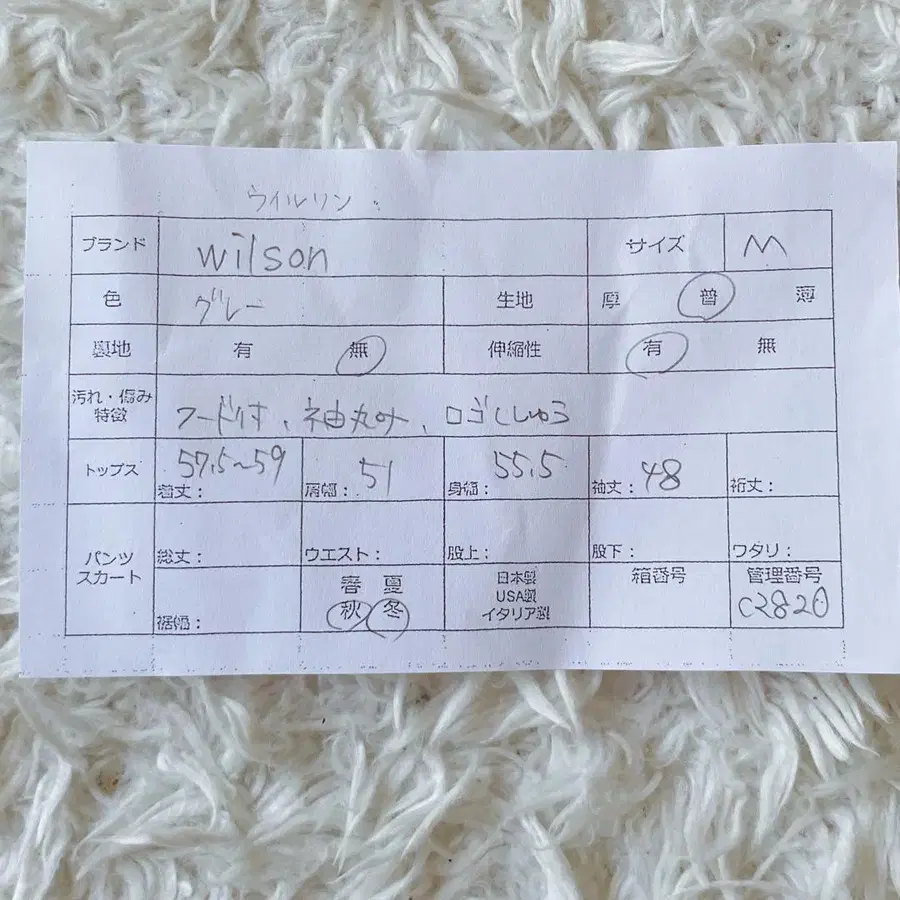 ウイルソン
ブランド wilson サイズ M
色 グレー 生地 厚 普 薄
裏地 有 無 伸縮性 有 無
汚れ・傷み
特徴 フード付、袖丸み、ロゴししゅう
トップス 着丈： 57.5~59 肩幅： 51 身幅： 55.5 袖丈： 48 裄丈：
パンツ
スカート
総丈： ウエスト： 股上： 股下： ワタリ：
裾幅： 春 夏
秋 冬
日本製
USA製
イタリア製
箱番号 管理番号
C2820